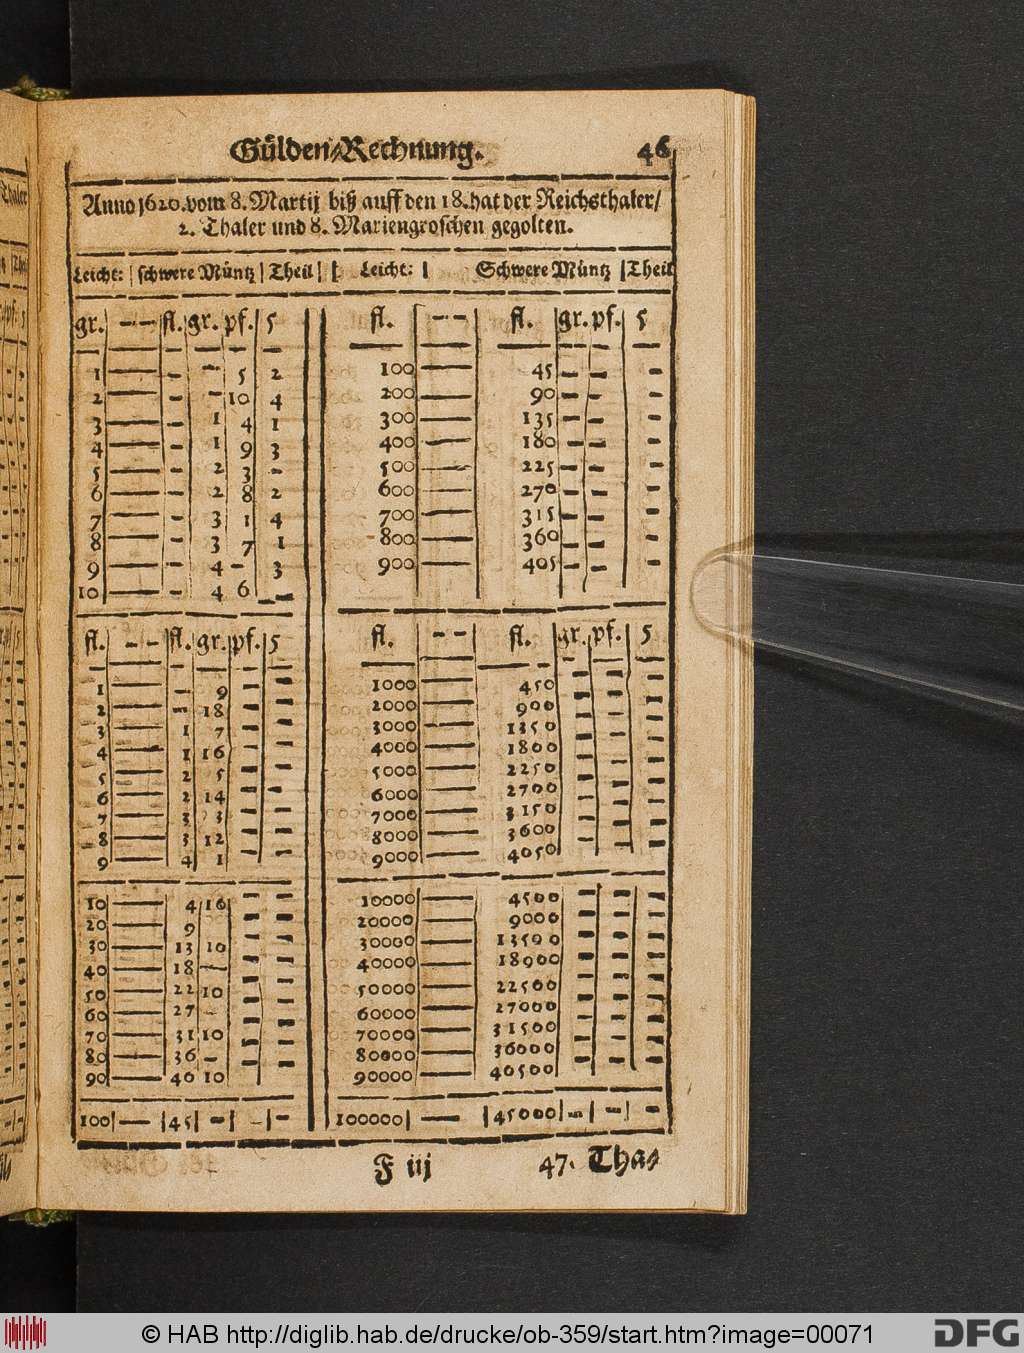 Gülden-Rechnung. 46
Anno 1620. vom 8. Martij biß auff den 18. hat der Reichsthaler/
2. Thaler und 8. Mariengroschen gegolten.
Leicht: | schwere Müntz | Theil | | Leicht: | Schwere Müntz | Theil
gr. - - fl. gr. pf. 5
1 — - - 5 2
2 — - - 10 4
3 — - 1 4 1
4 — - 1 9 3
5 — - 2 3 -
6 — - 2 8 2
7 — - 3 1 4
8 — - 3 7 1
9 — - 4 - 3
10 — - 4 6 -
fl. - - fl. gr. pf. 5
1 — - 9 - -
2 — - 18 - -
3 — 1 7 - -
4 — 1 16 - -
5 — 2 5 - -
6 — 2 14 - -
7 — 3 3 - -
8 — 3 12 - -
9 — 4 1 - -
10 — 4 16 - -
20 — 9 - -
30 — 13 10 - -
40 — 18 — - -
50 — 22 10 - -
60 — 27 - - -
70 — 31 10 - -
80 — 36 - - -
90 — 40 10 - -
100 | — | 45 | - | - | -
fl. - - fl. gr. pf. 5
100 — 45 - - -
200 — 90 - - -
300 — 135 - - -
400 — 180 - - -
500 — 225 - - -
600 — 270 - - -
700 — 315 - - -
800 — 360 - - -
900 — 405 - - -
fl. - - fl. gr. pf. 5
1000 — 450 - - -
2000 — 900 - - -
3000 — 1350 - - -
4000 — 1800 - - -
5000 — 2250 - - -
6000 — 2700 - - -
7000 — 3150 - - -
8000 — 3600 - - -
9000 — 4050 - - -
10000 — 4500 - - -
20000 — 9000 - - -
30000 — 13500 - - -
40000 — 18900 - - -
50000 — 22500 - - -
60000 — 27000 - - -
70000 — 31500 - - -
80000 — 36000 - - -
90000 — 40500 - - -
100000 | — | 45000 | - | - | -
F iij 47. Tha-
© HAB http://diglib.hab.de/drucke/ob-359/start.htm?image=00071
DFG